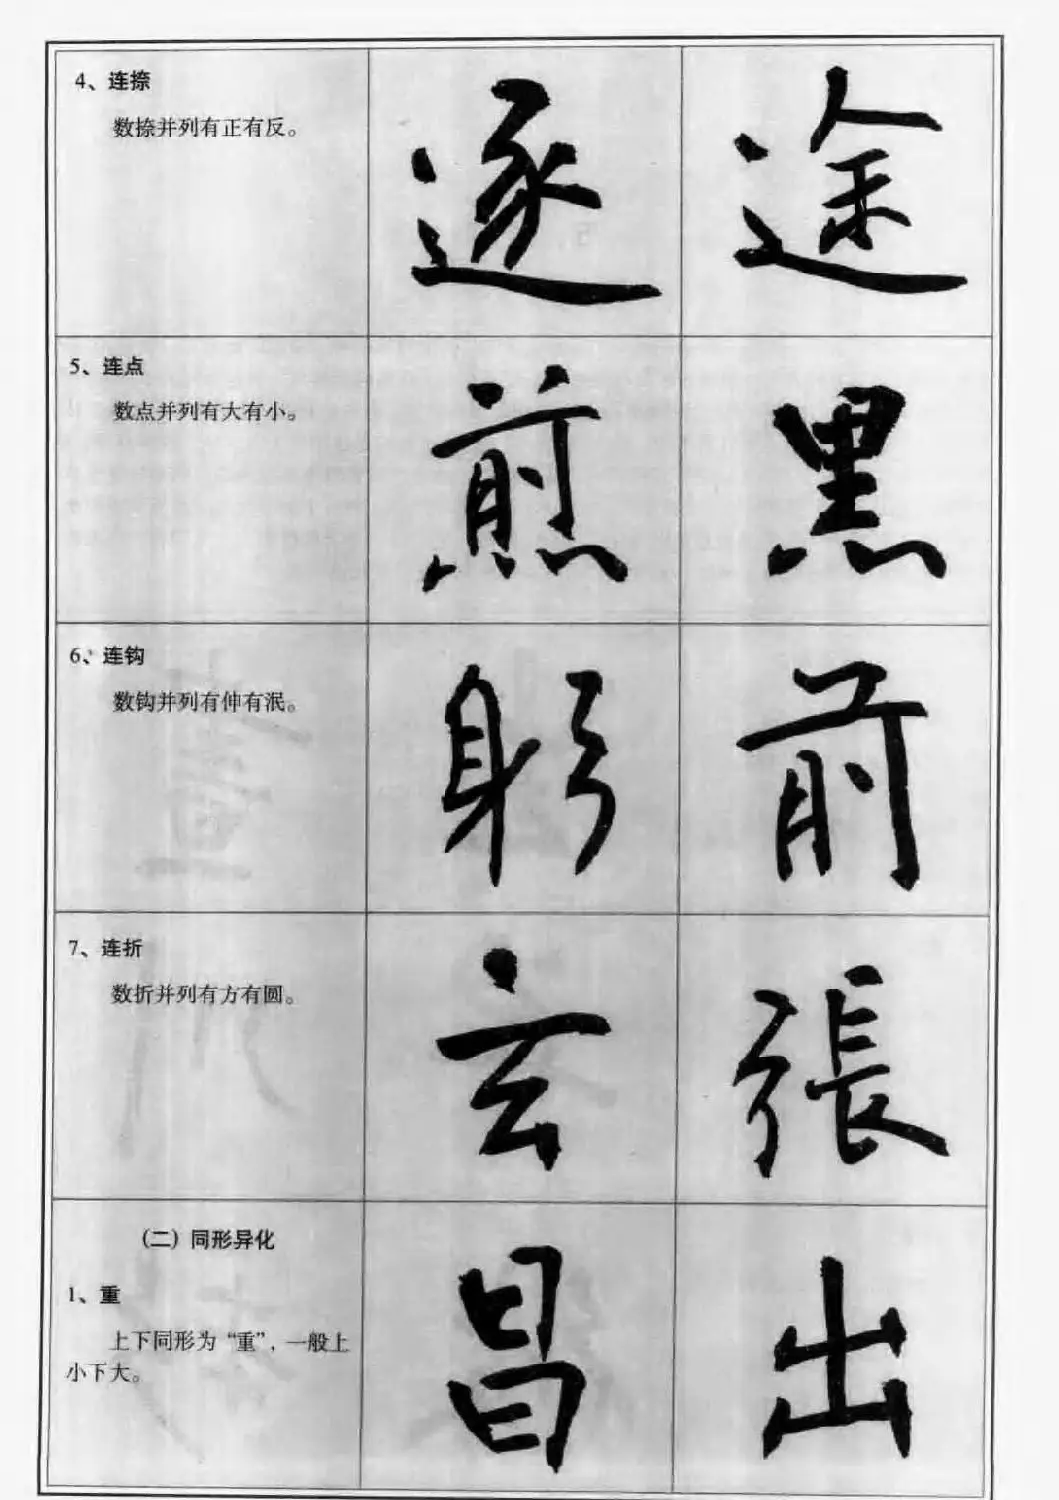 4、连捺
数捺并列有正有反。
逐 途
5、连点
数点并列有大有小。
煎 黑
6、连钩
数钩并列有伸有泯。
躬 前
7、连折
数折并列有方有圆。
玄 張
(二) 同形异化
1、重
上下同形为“重”，一般上
小下大。
昌 出